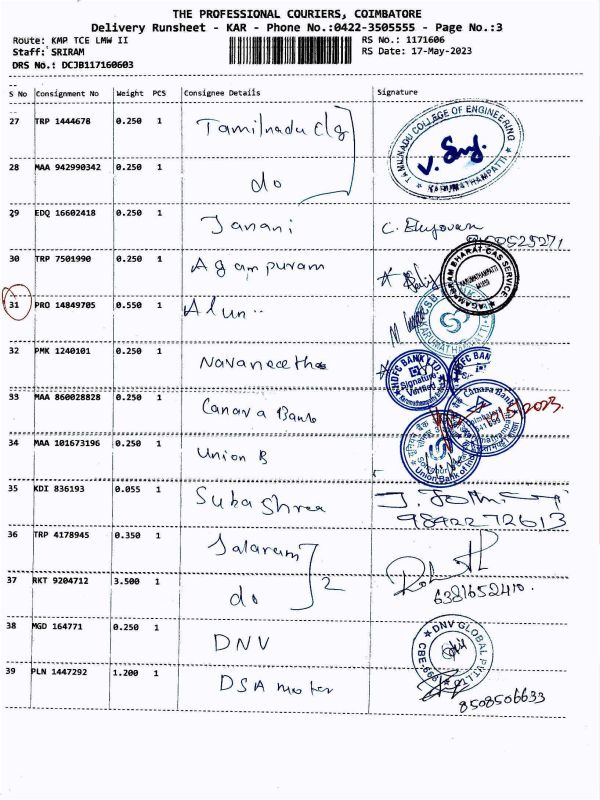 THE PROFESSIONAL COURIERS, COIMBATORE
Delivery Runsheet - KAR - Phone No.:0422-3505555 - Page No.:3
Route: KMP TCE LMW II
RS No.: 1171606
Staff: SRIRAM
RS Date: 17-May-2023
DRS No.: DCJB117160603
S No Consignment No Weight PCS Consignee Details Signature
27 TRP 1444678 0.250 1 Tamilnadu clg
TAMILNADU COLLEGE OF ENGINEERING
KARUMATHAMPATTI
28 MAA 942990342 0.250 1 do
29 EDQ 16602418 0.250 1 Janani
30 TRP 7501990 0.250 1 Agampuram
BHARAT GAS SERVICE
31 PRO 14849705 0.550 1 Alun
CSB
KARUMATHAMPATTI
32 PMK 1240101 0.250 1 Navaneetha
HDFC BANK LTD.
Signature Verified
HDFC BANK
33 MAA 860028828 0.250 1 Canara Bank
Canara Bank
34 MAA 101673196 0.250 1 Union B
Union Bank of India
35 KDI 836193 0.055 1 Suba Shree
9842272613
36 TRP 4178945 0.350 1 Jalaram
2
37 RKT 9204712 3.500 1 do
6381652410.
38 MGD 164771 0.250 1 DNV
DNV GLOBAL PVT. LTD
39 PLN 1447292 1.200 1 DSA moter
8508506633